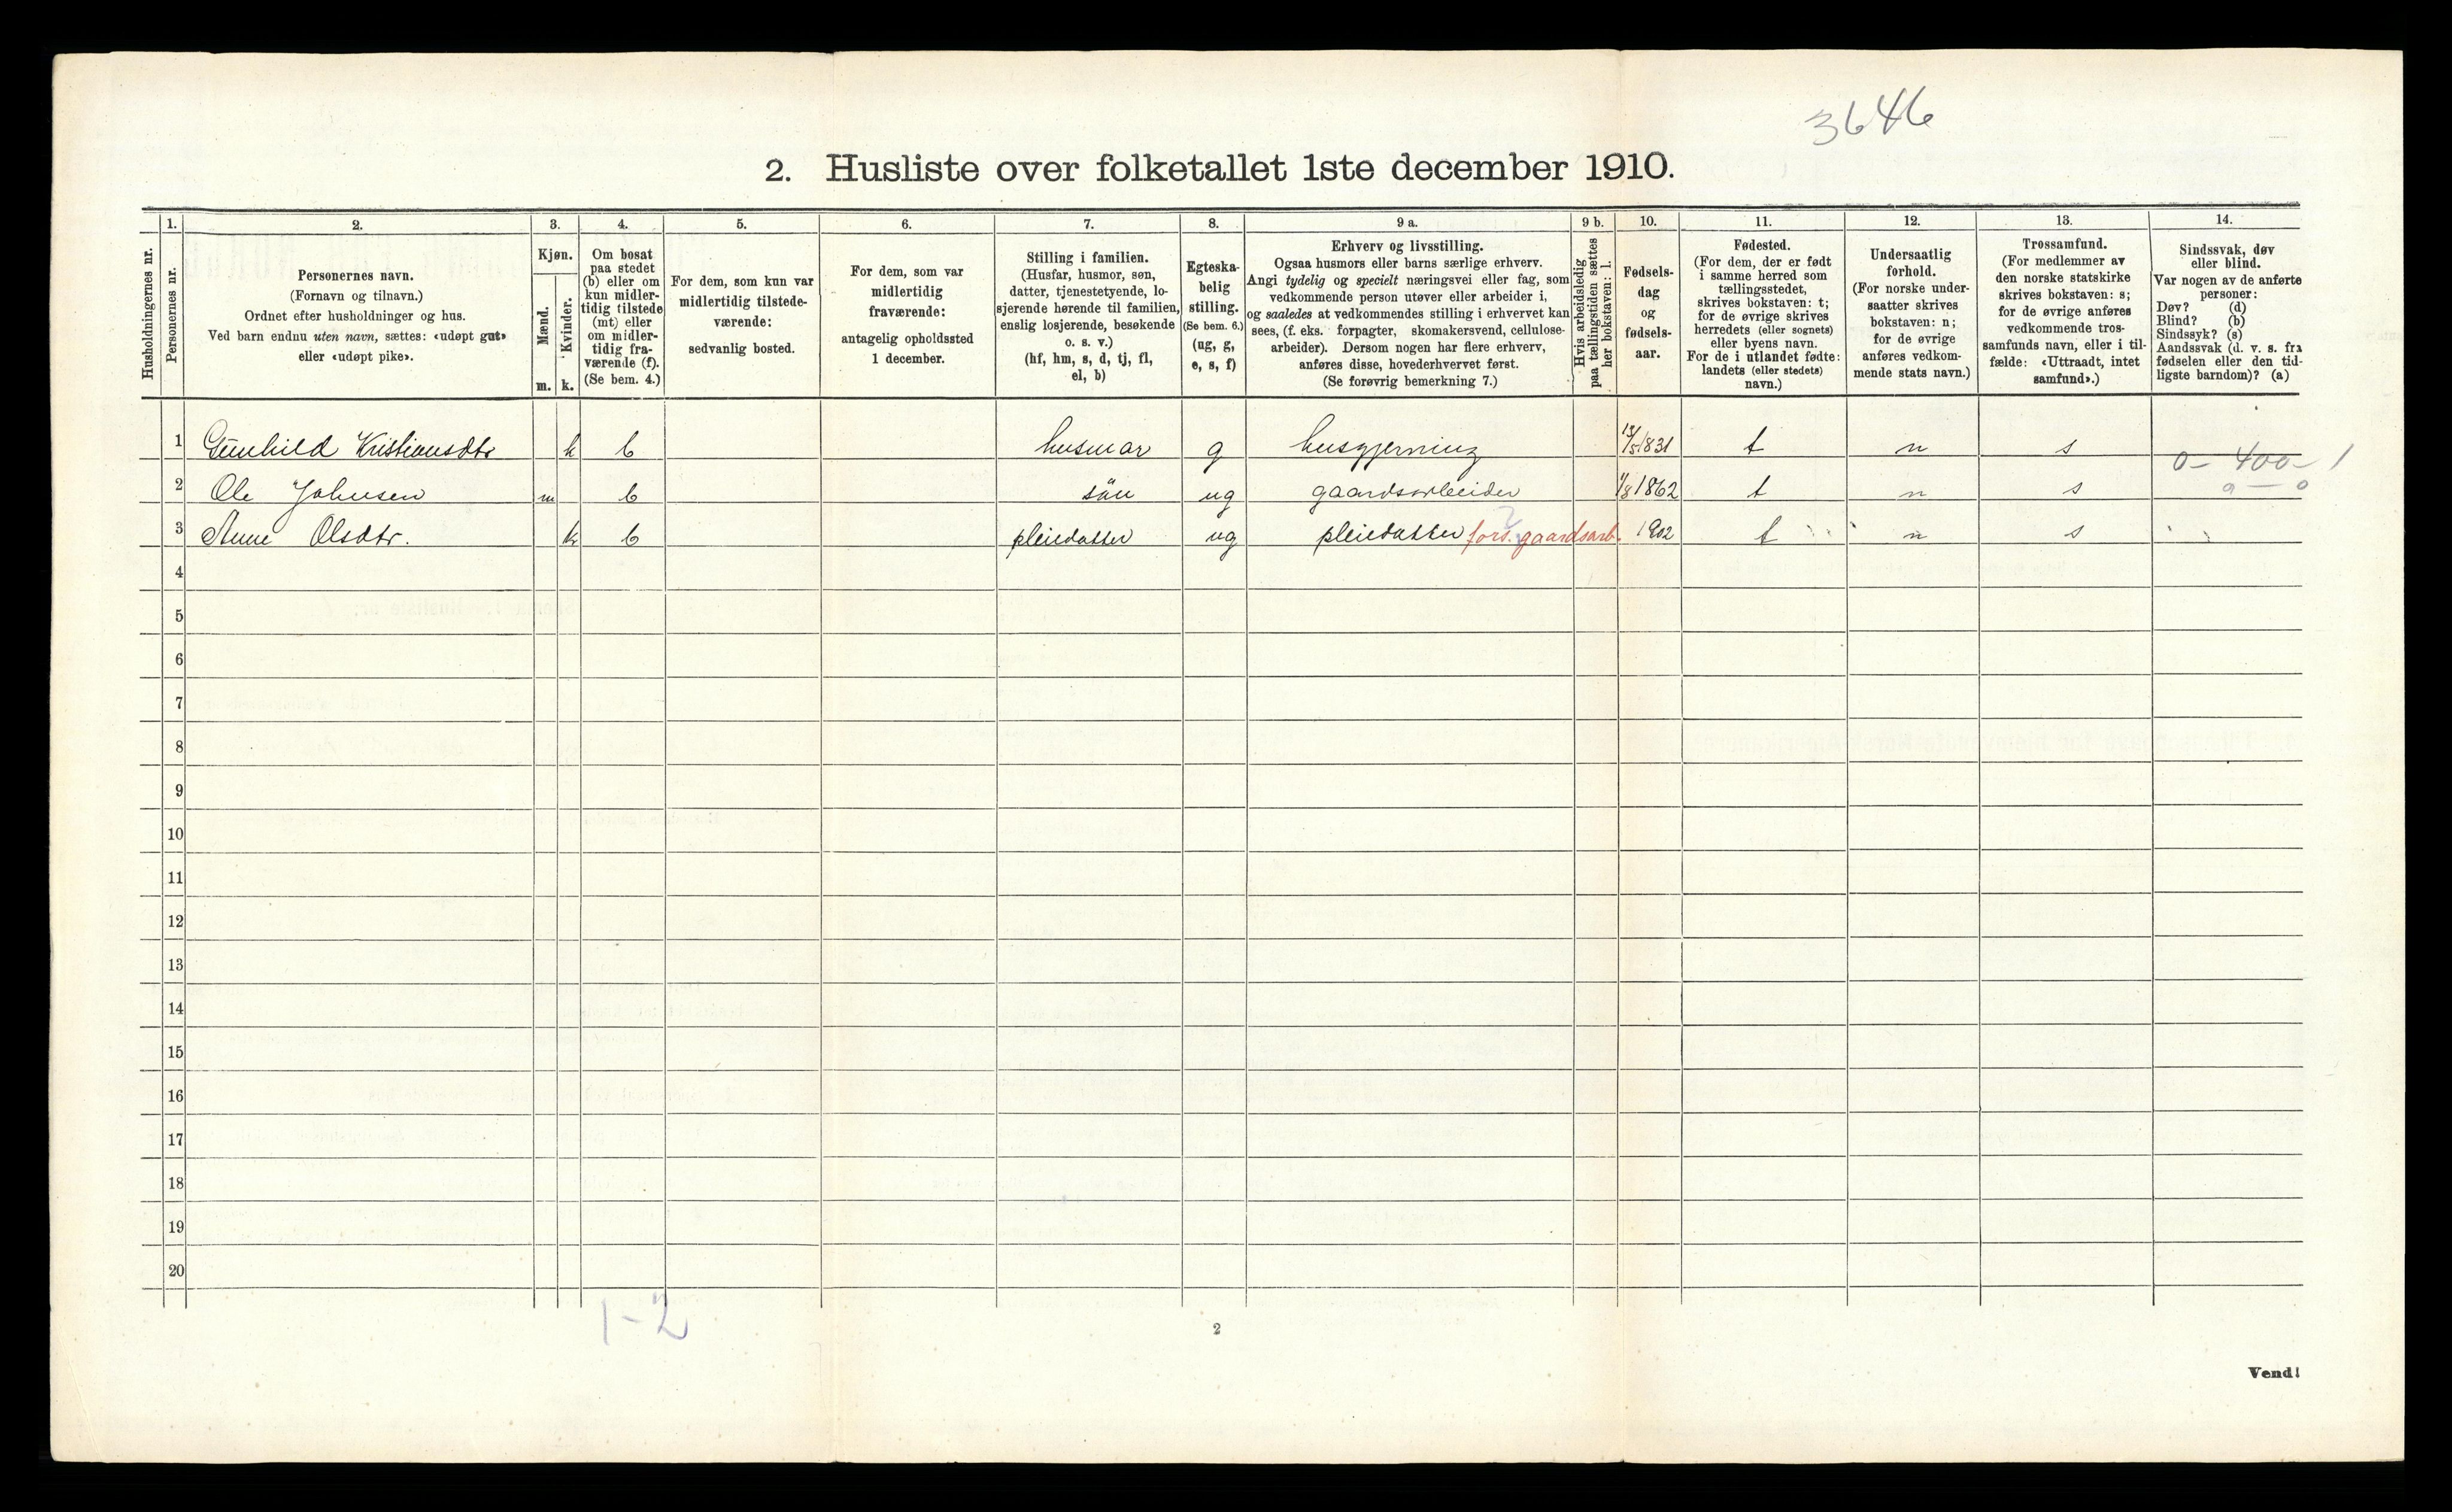 3646
2. Husliste over folketallet 1ste december 1910.
Husholdningernes nr.
1.
Personernes nr.
2.
Personernes navn.
(Fornavn og tilnavn.)
Ordnet efter husholdninger og hus.
Ved barn endnu uten navn, sættes: «udøpt gut»
eller «udøpt pike».
3.
Kjøn.
Mænd.
Kvinder.
m. k.
4.
Om bosat
paa stedet
(b) eller om
kun midler-
tidig tilstede
(mt) eller
om midler-
tidig fra-
værende (f).
(Se bem. 4.)
5.
For dem, som kun var
midlertidig tilstede-
værende:
sedvanlig bosted.
6.
For dem, som var
midlertidig
fraværende:
antagelig opholdssted
1 december.
7.
Stilling i familien.
(Husfar, husmor, søn,
datter, tjenestetyende, lo-
sjerende hørende til familien,
enslig losjerende, besøkende
o. s. v.)
(hf, hm, s, d, tj, fl,
el, b)
8.
Egteska-
belig
stilling.
(Se bem. 6.)
(ug, g,
e, s, f)
9 a.
Erhverv og livsstilling.
Ogsaa husmors eller barns særlige erhverv.
Angi tydelig og specielt næringsvei eller fag, som
vedkommende person utøver eller arbeider i,
og saaledes at vedkommendes stilling i erhvervet kan
sees, (f. eks. forpagter, skomakersvend, cellulose-
arbeider). Dersom nogen har flere erhverv,
anføres disse, hovederhvervet først.
(Se forøvrig bemerkning 7.)
9 b.
Hvis arbeidsledig
paa tællingstiden sættes
her bokstaven: l.
10.
Fødsels-
dag
og
fødsels-
aar.
11.
Fødested.
(For dem, der er født
i samme herred som
tællingsstedet,
skrives bokstaven: t;
for de øvrige skrives
herredets (eller sognets)
eller byens navn.
For de i utlandet fødte:
landets (eller stedets)
navn.)
12.
Undersaatlig
forhold.
(For norske under-
saatter skrives
bokstaven: n;
for de øvrige
anføres vedkom-
mende stats navn.)
13.
Trossamfund.
(For medlemmer av
den norske statskirke
skrives bokstaven: s;
for de øvrige anføres
vedkommende tros-
samfunds navn, eller i til-
fælde: «Uttraadt, intet
samfund».)
14.
Sindssvak, døv
eller blind.
Var nogen av de anførte
personer:
Døv? (d)
Blind? (b)
Sindssyk? (s)
Aandssvak (d. v. s. fra
fødselen eller den tid-
ligste barndom)? (a)
1 Gunhild Kristiansdtr k b husmor g husgjerning 13/5 1831 t n s
0 - 400 - 1
2 Ole Johnsen m b sön ug gaardsarbeider 1/8 1862 t n s
0 — 0
3 Anne Olsdtr. k b pleiedatter ug pleiedatter fors. gaardsarb. 1902 t n s
4
5
6
7
8
9
10
11
12
13
14
15
16
17
18
19
20
1-2
2
Vend!